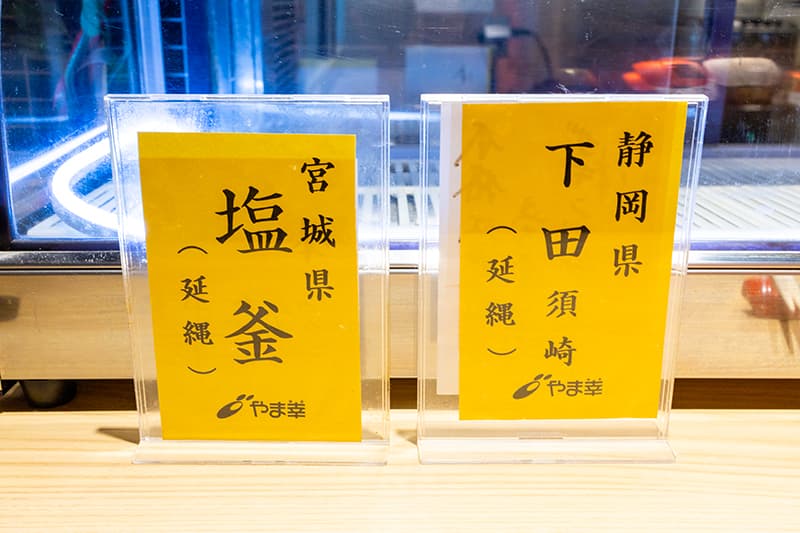 宮城県
塩釜
（延縄）
やま幸
静岡県
下田須崎
（延縄）
やま幸